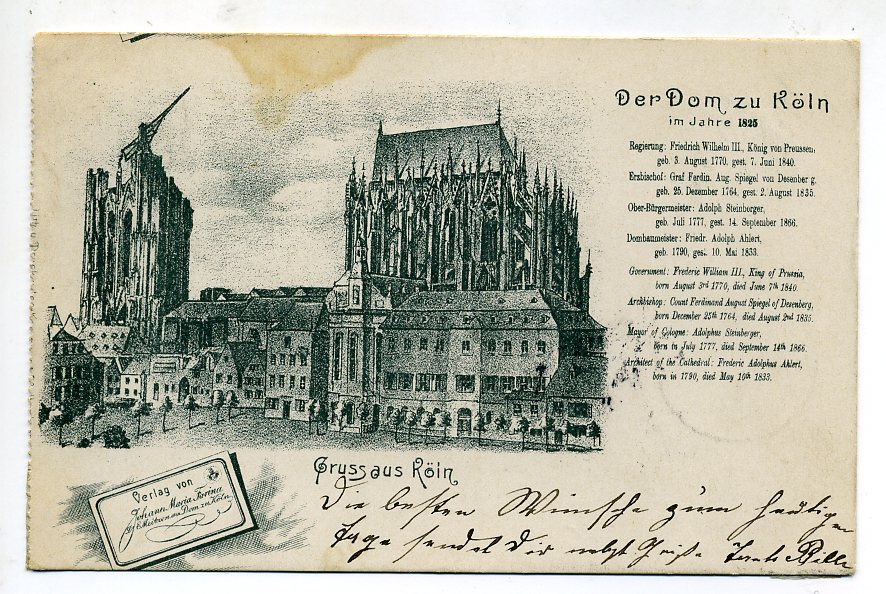 Der Dom zu Köln
im Jahre 1825
Regierung: Friedrich Wilhelm III., König von Preussen,
geb. 3. August 1770, gest. 7. Juni 1840.
Erzbischof: Graf Ferdin. Aug. Spiegel von Desenberg,
geb. 25. Dezember 1764, gest. 2. August 1835.
Ober-Bürgermeister: Adolph Steinberger,
geb. Juli 1777, gest. 14. September 1866.
Dombaumeister: Friedr. Adolph Ahlert,
geb. 1790, gest. 10. Mai 1833.
Government: Frederic William III., King of Prussia,
born August 3rd 1770, died June 7th 1840.
Archbishop: Count Ferdinand August Spiegel of Desenberg,
born December 25th 1764, died August 2nd 1835.
Mayor of Cologne: Adolphus Steinberger,
born in July 1777, died September 14th 1866.
Architect of the Cathedral: Frederic Adolphus Ahlert,
born in 1790, died May 10th 1833.
Gruss aus Köln
Verlag von
Johann Maria Farina
Dom zu Köln
Die besten Wünsche zum heutigen
Tage sendet Dir nebst